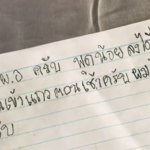 ผ.อ ครับ พูดน้อย ลงได้
เข้าแถว ตอน เช้า ครับ ผม
บ